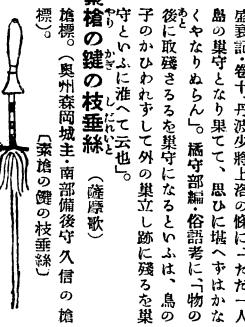 盛衰記・卷十、丹波少將上洛の條に「ただ一人
島の巣守となり果てて、思ひに堪へずはかな
くやなりぬらん」。橘守部編・俗語考に「物の
後に取殘さるるを巣守になるといふは、鳥の
子のかひわれずして外の巣立し跡に殘るを巣
守といふに准へて云也」。
素槍の鍵の枝垂絲 (薩摩歌)
槍標。(奥州森岡城主・南部備後守久信の槍
標)。
〔素槍の鍵の枝垂絲〕